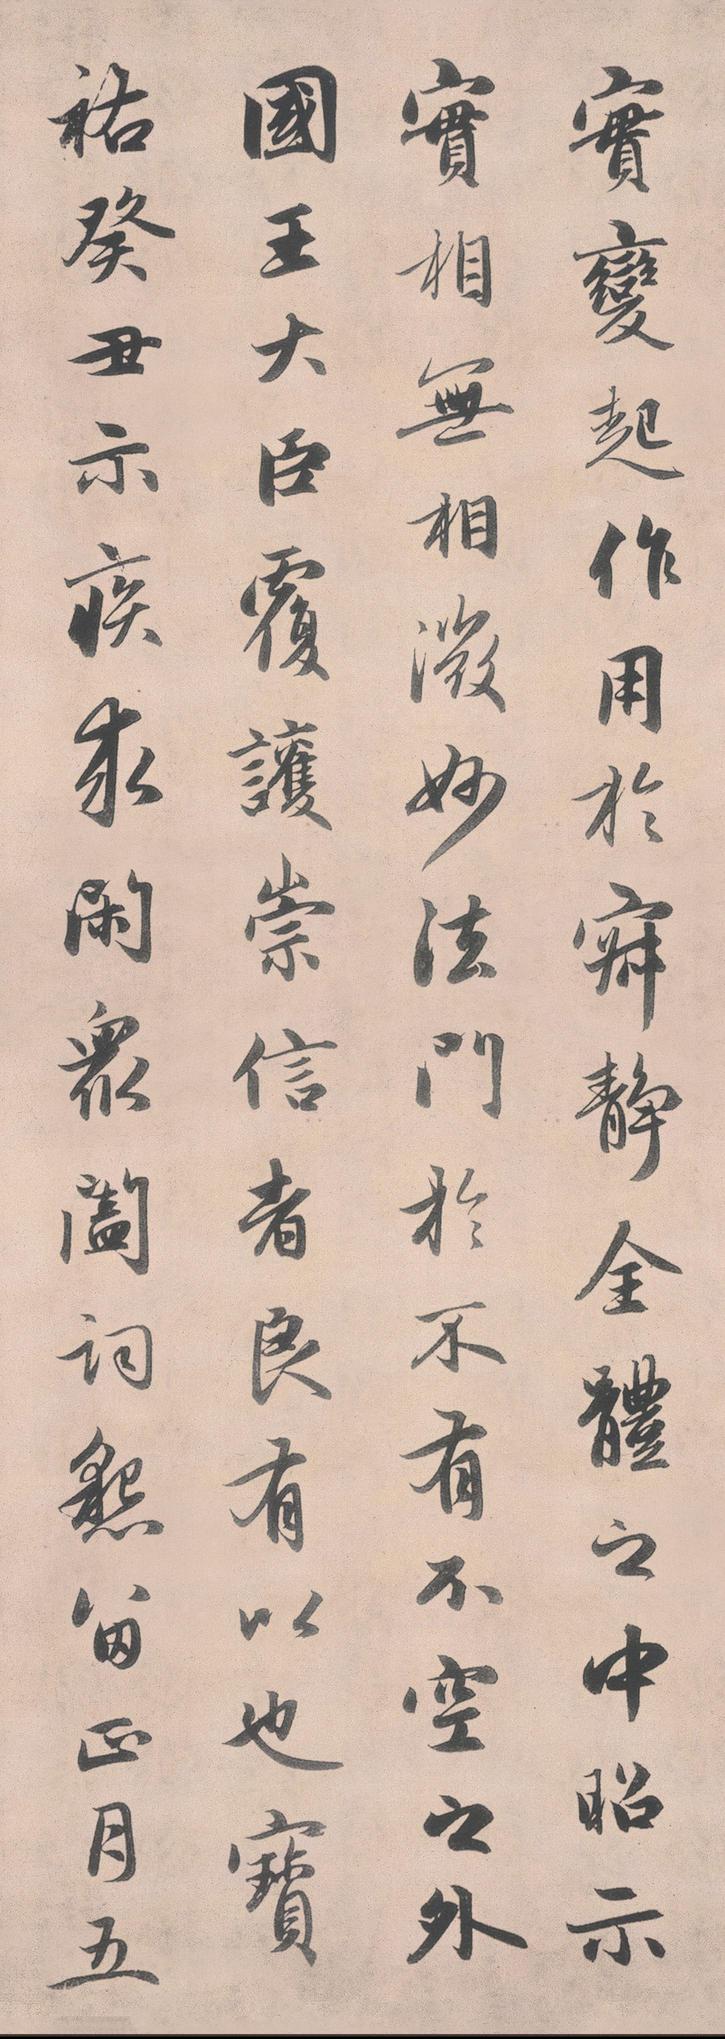 實變起作用於寂静全體之中昭示
實相無相微妙法門於不有不空之外
國王大臣覆護崇信者良有以也寶
祐癸丑示疾求閑衆闔詞懇留正月五